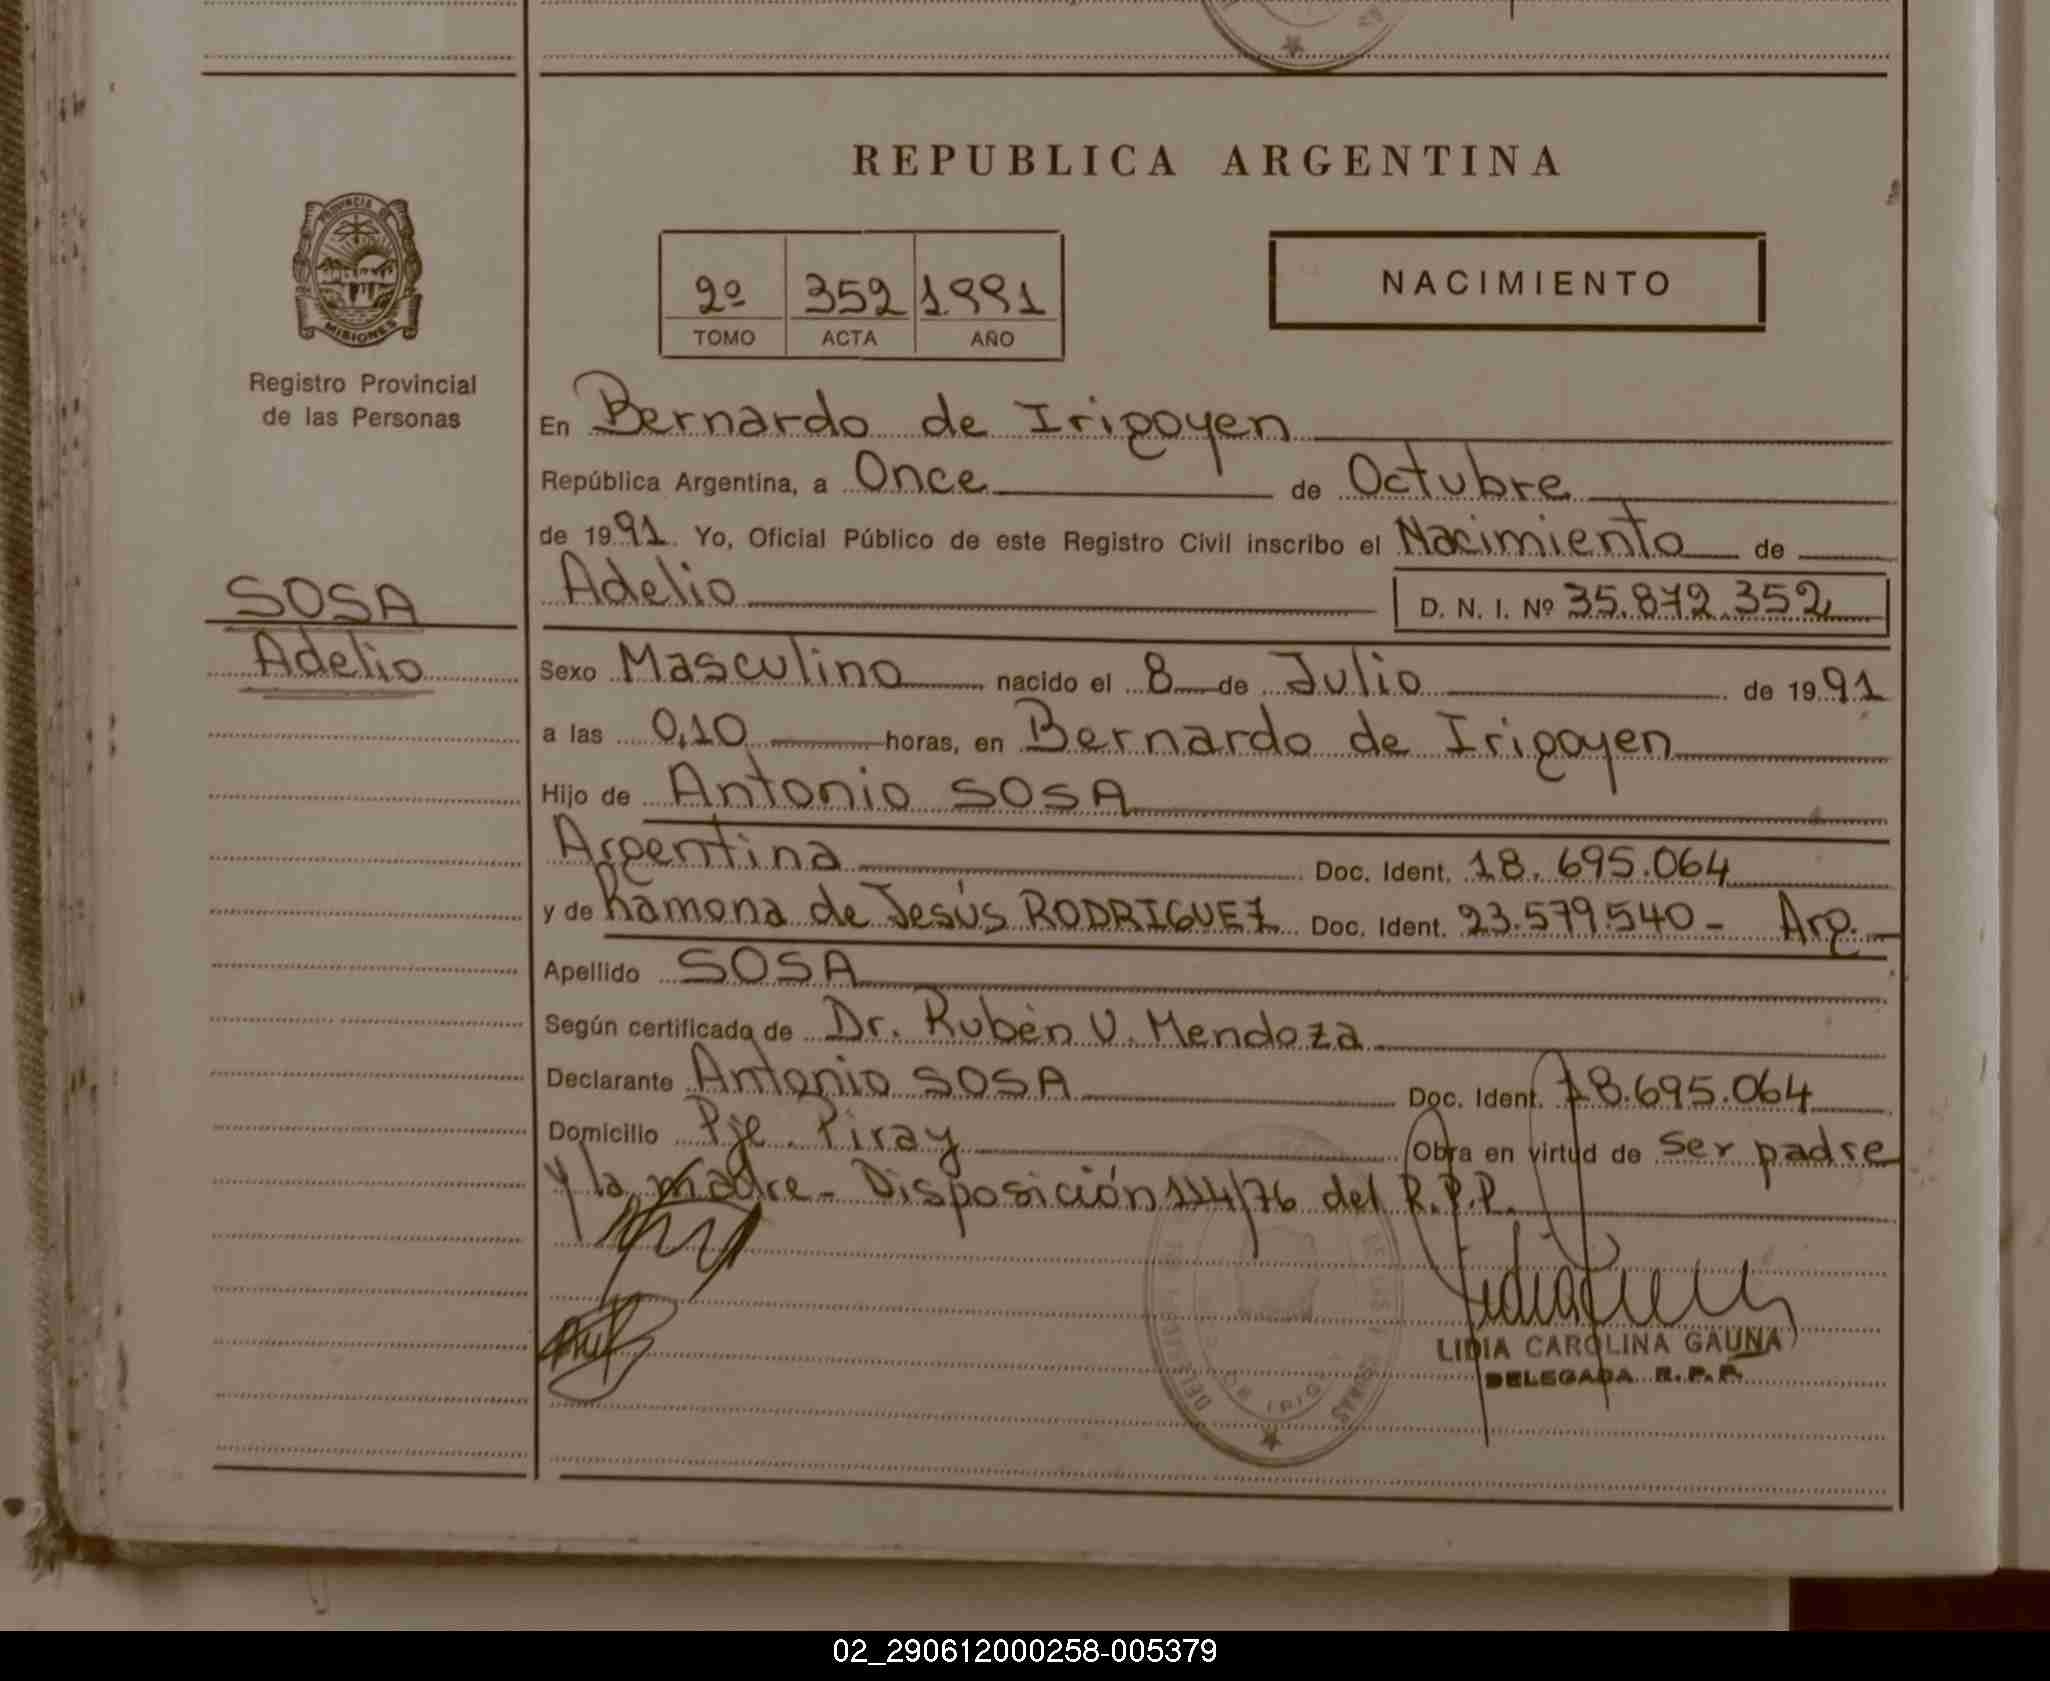 REPUBLICA ARGENTINA
PROVINCIA DE
MISIONES
Registro Provincial
de las Personas
2º 352 1991
TOMO ACTA AÑO
NACIMIENTO
En Bernardo de Irigoyen
República Argentina, a Once de Octubre
de 1991. Yo, Oficial Público de este Registro Civil inscribo el Nacimiento de
SOSA
Adelio
Adelio D. N. I. Nº 35.872.352
Sexo Masculino nacido el 8 de Julio de 1991
a las 0,10 horas, en Bernardo de Irigoyen
Hijo de Antonio SOSA
Argentina Doc. Ident. 18.695.064
y de Ramona de Jesús RODRIGUEZ Doc. Ident. 23.579.540- Arg.
Apellido SOSA
Según certificado de Dr. Rubén V. Mendoza
Declarante Antonio SOSA Doc. Ident. 18.695.064
Domicilio Pje. Piray Obra en virtud de ser padre
y la madre - Disposición 114/76 del R.P.P.
LIDIA CAROLINA GAUNA
DELEGADA R.P.P.
02_290612000258-005379